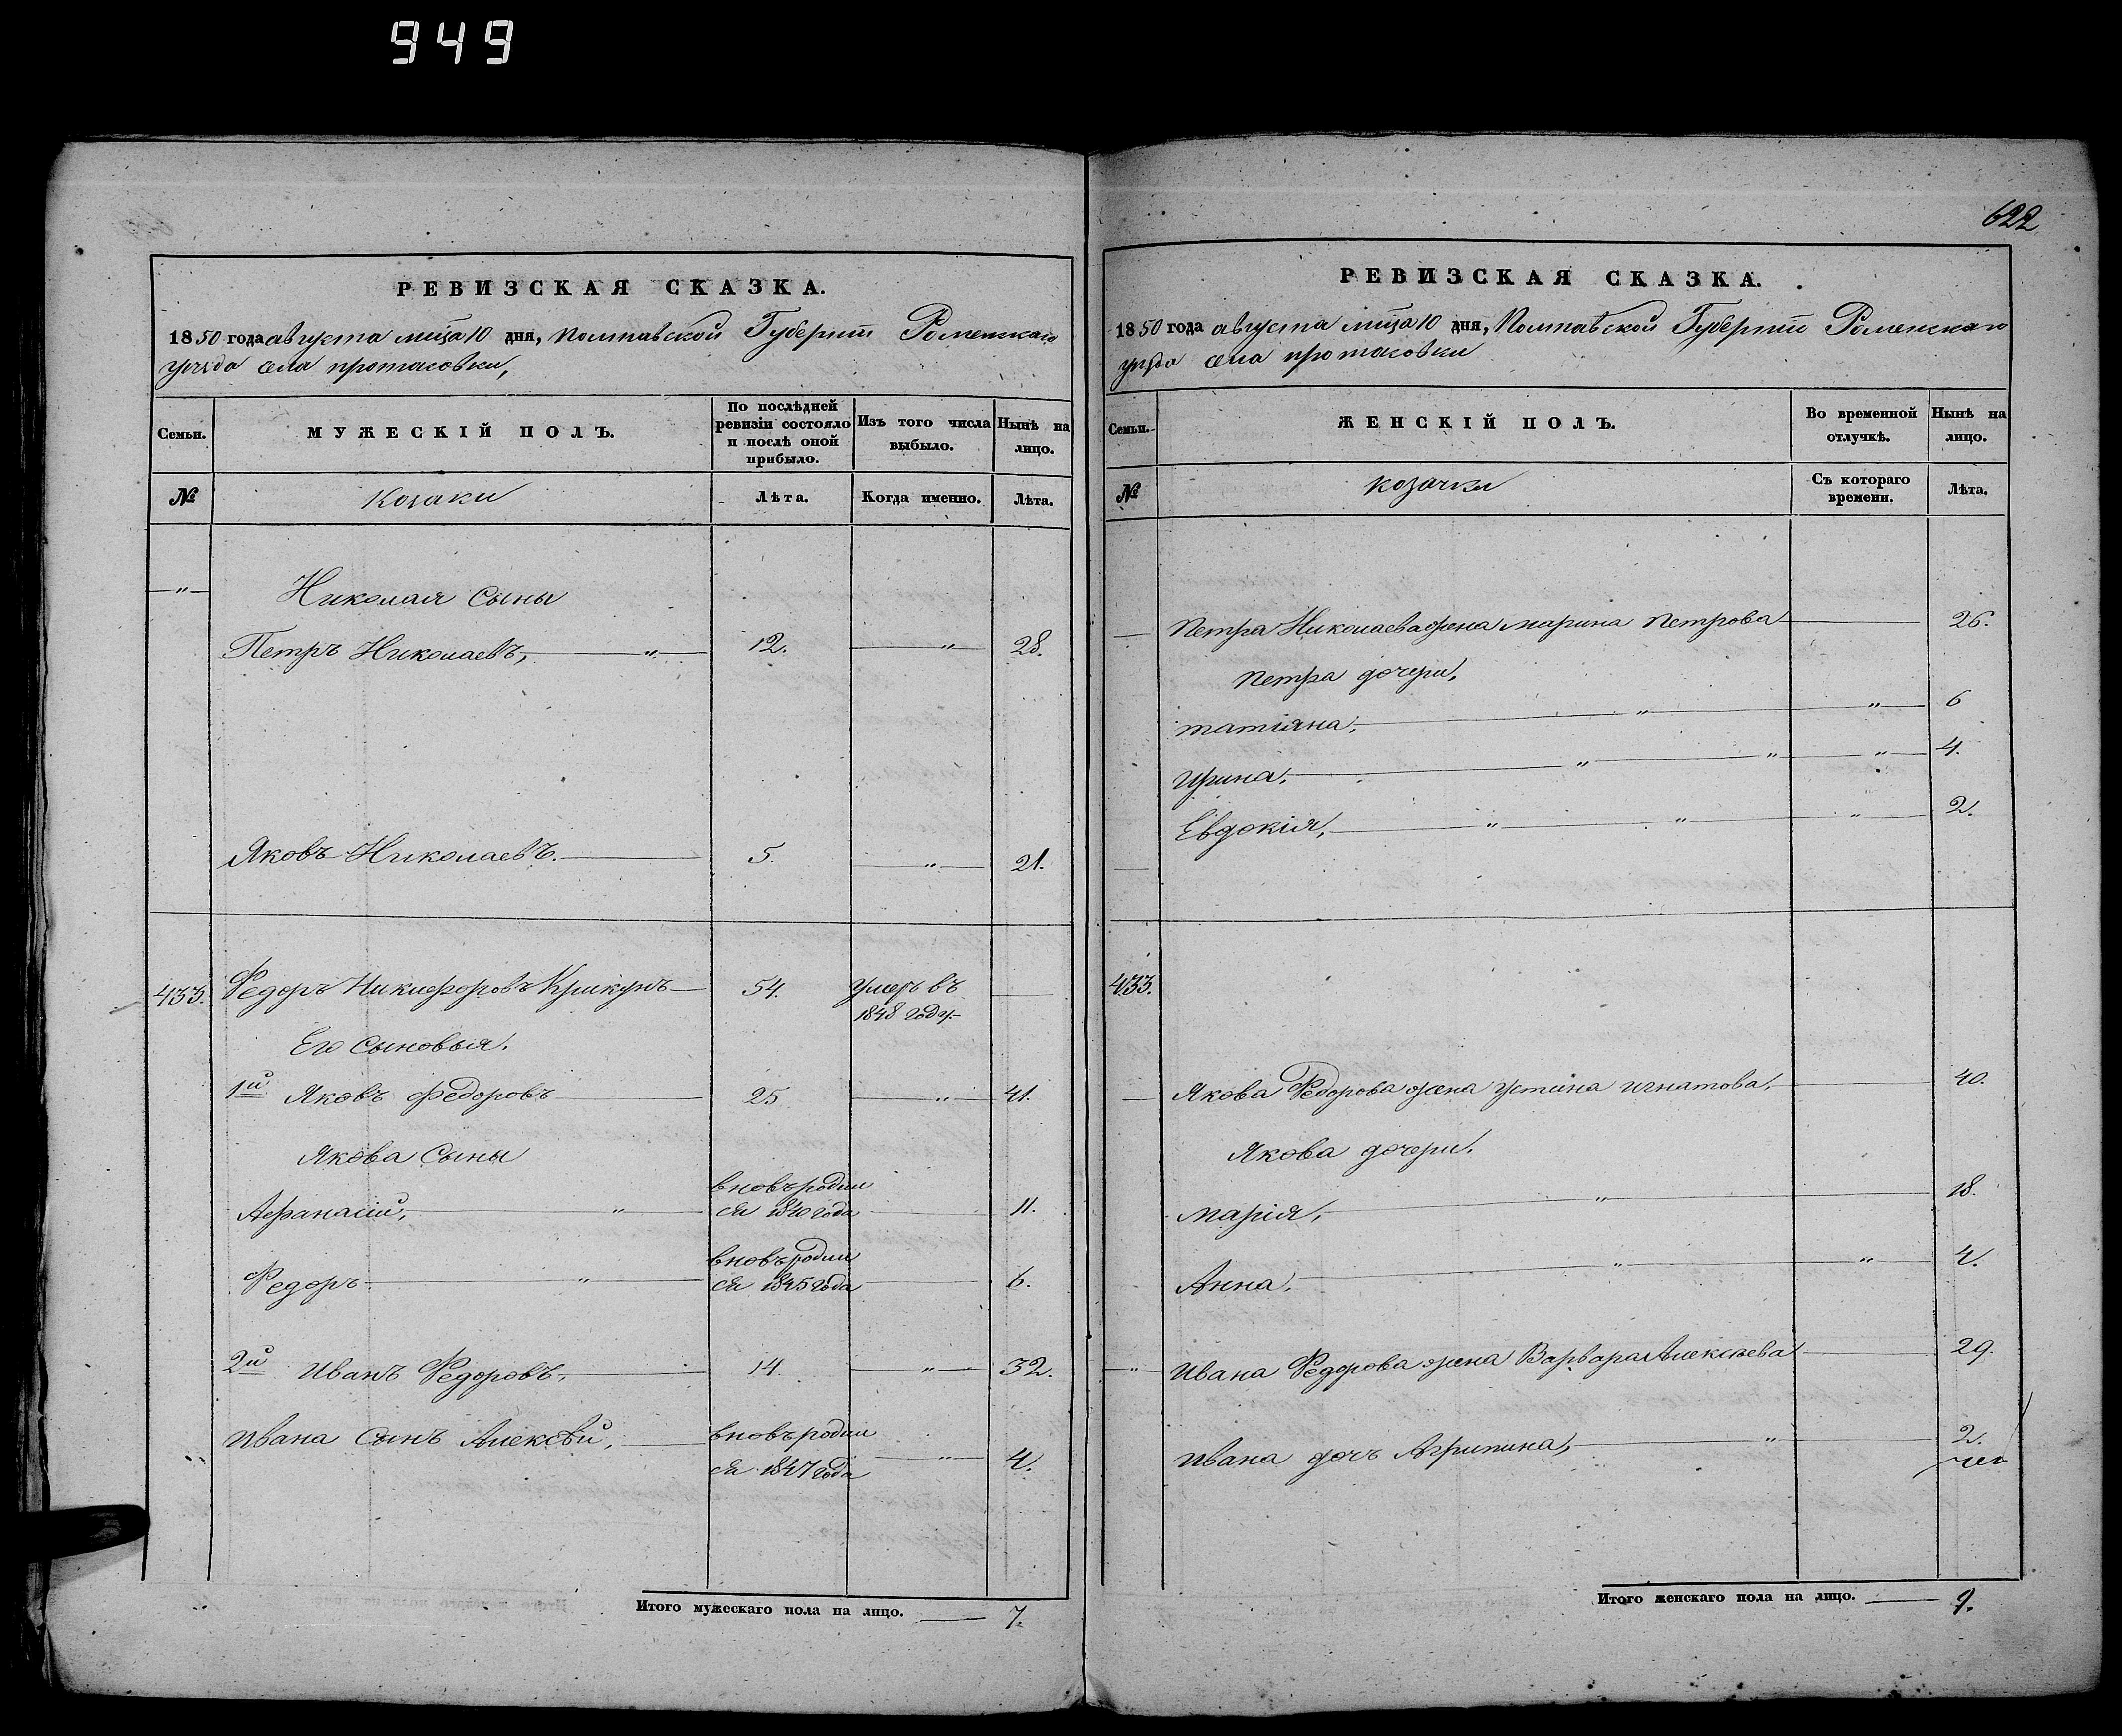 949
РЕВИЗСКАЯ СКАЗКА.
1850 года августа мѣца 10 дня, Полтавской Губерніи Роменскаго
уѣзда села протасовки,
Семьи.
МУЖЕСКІЙ ПОЛЪ.
По послѣдней ревизіи состояло и послѣ оной прибыло.
Изъ того числа выбыло.
Нынѣ на лицо.
№
Козаки
Лѣта.
Когда именно.
Лѣта.
— " — Николая Сыны
Петръ Николаевъ, — " — 12. — " — 28.
Яковъ Николаевъ. — 5. — " — 21.
433. Федоръ Никифоровъ Крикунъ — 54. умеръ въ —
1848 году. —
Его Сыновья.
1й Яковъ Федоровъ — 25 — " — 41.
Якова Сыны
вновь родил
Афанасій, — " — ся 1840 года — 11.
вновь родил
Федоръ — " — ся 1845 года — 6.
2й Иванъ Федоровъ, — 14. — " — 32.
Ивана Сынъ Алексѣй, — вновь родил
ся 1847 года — " — 4.
Итого мужескаго пола на лицо. — 7.
622
РЕВИЗСКАЯ СКАЗКА.
1850 года августа мѣца 10 дня, Полтавской Губерніи Роменскаго
уѣзда села протасовки
Семьи.
ЖЕНСКІЙ ПОЛЪ.
Во временной отлучкѣ.
Нынѣ на лицо.
№
козачки
Съ котораго времени.
Лѣта.
— Петра Николаева жена марина Петрова — 26.
Петра дочери,
татіяна, — " — " — 6
Ирина, — " — " — " — 4.
Евдокія, — " — " — " — 2.
433.
— Якова Федорова жена устина игнатова, — 40.
Якова дочери,
марія, — " — 18.
Анна, — " — " — 4.
— " — Ивана Федорова жена Варвара Алексѣева — 29.
Ивана дочь Агрипина, — " — 2.
Итого женскаго пола на лицо. — 9.